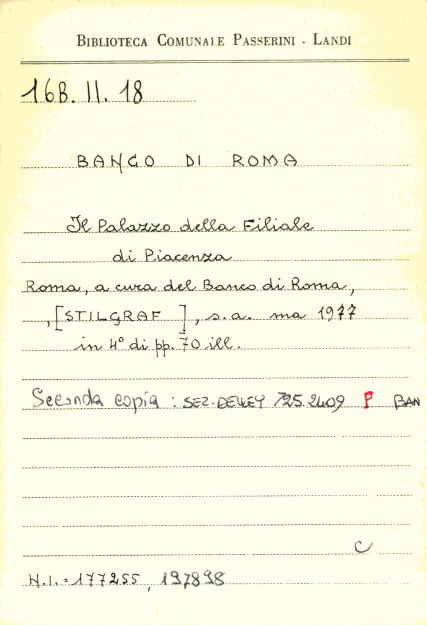 BIBLIOTECA COMUNALE PASSERINI - LANDI
16B. II. 18
BANCO DI ROMA
Il Palazzo della Filiale
di Piacenza
Roma, a cura del Banco di Roma,
, [STILGRAF ], s.a. ma 1977
in 4° di pp. 70 ill.
Seconda copia : SEZ-DEWEY 725.2409 P BAN
C
N.I. = 177255, 197898